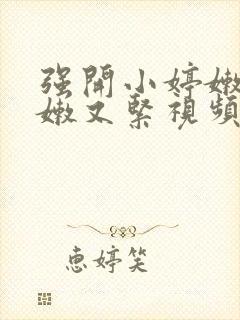 强開小婷嫩
嫩又緊視頻
恵婷笑